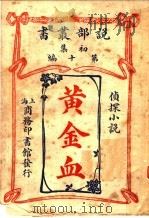 説部叢書
初集
第十編
偵探小説
黃金血
上海商務印書館發行